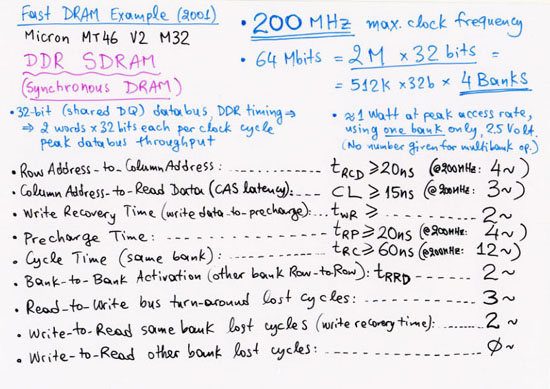 Fast DRAM Example (2001)
Micron MT46 V2 M32
DDR SDRAM
(Synchronous DRAM)
• 200 MHz max. clock frequency
• 64 Mbits = 2M x 32 bits =
= 512K x 32b x 4 Banks
• 32-bit (shared DQ) databus, DDR timing ⇒
⇒ 2 words x 32 bits each per clock cycle
peak databus throughput
• ≈ 1 Watt at peak access rate,
using one bank only, 2.5 Volt.
(No number given for multibank op.)
• Row Address-to-Column Address: tRCD ≥ 20ns (@200MHz: 4~)
• Column Address-to-Read Data (CAS latency): CL ≥ 15ns (@200MHz: 3~)
• Write Recovery Time (write data-to-precharge): tWR ≥ 2~
• Precharge Time: tRP ≥ 20ns (@200MHz: 4~)
• Cycle Time (same bank): tRC ≥ 60ns (@200MHz: 12~)
• Bank-to-Bank Activation (other bank Row-to-Row): tRRD 2~
• Read-to-Write bus turn-around lost cycles: 3~
• Write-to-Read same bank lost cycles (write recovery time): 2~
• Write-to-Read other bank lost cycles: 0~